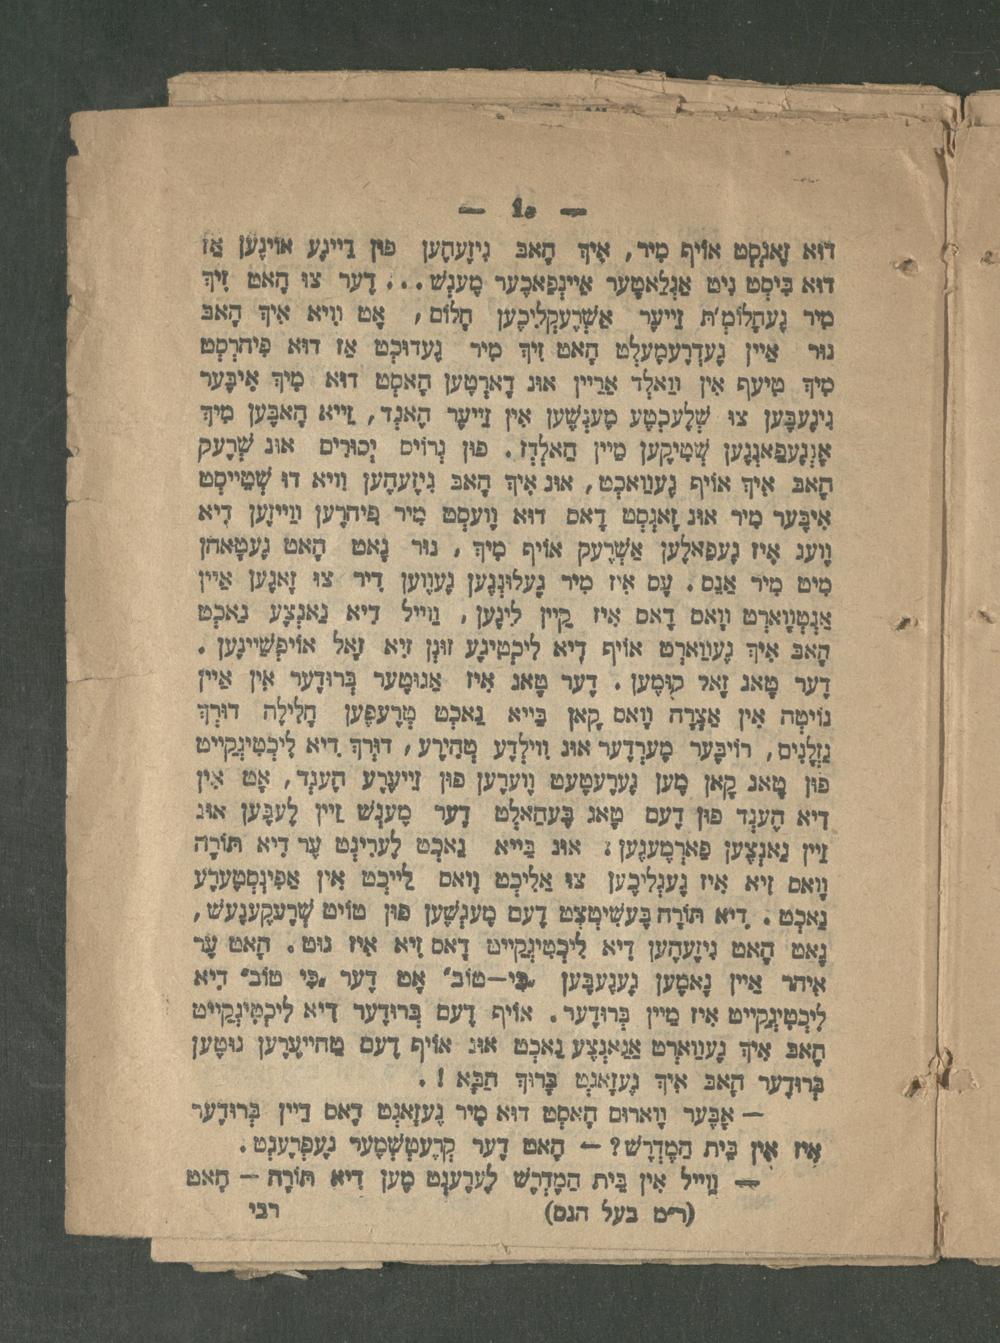 — 10 —
דוּא זָאנְסְט אוֹיף מִיר, אִיךְ הָאבּ גִיזֶעהֶען פוּן דַיינֶע אוֹיגֶען אַז
דוּא בִּיסְט נִיט אַגְלַאטֶער אֵיינְפַאכֶער מֶענְשׁ... דֶער צוּ הָאט זִיךְ
מִיר גֶעחָלוֹמְ'ת זֵייעֶר אַשְׁרֶעקְלִיכֶען חָלוֹם, אָט וִויא אִיךְ הָאבּ
נוּר אַיין גֶעדְרֶעמֶעלְט הָאט זִיךְ מִיר גֶעדוּכְט אַז דוּא פִיהְרְסְט
מִיךְ טִיעֶף אִין וַואלְד אַרַיין אוּנ דָארְטֶען הָאסְט דוּא מִיךְ אִיבֶּער
גִיגֶעבֶּען צוּ שְׁלֶעכְטֶע מֶענְשֶׁען אִין זֵייעֶר הַאנְד, זֵייא הָאבֶּען מִיךְ
אָנְגֶעפַאנְגֶען שְׁטִיקֶען מַיין הַאלְדְז. פוּן גְרוֹיס יְסוּרִים אוּנ שְׁרֶעק
הָאבּ אִיךְ אוֹיף גֶעוַואכְט, אוּנ אִיךְ הָאבּ גִיזֶעהֶען וִויא דוּ שְׁטֵייסְט
אִיבֶּער מִיר אוּנ זָאגְסְט דָאס דוּא וֶועסְט מִיר פִיהְרֶען וַוייזֶען דִיא
וֶועג אִיז גֶעפַאלֶען אַשְׁרֶעק אוֹיף מִיךְ, נוּר גָאט הָאט גֶעטָאהן
מִיט מִיר אַנֵס. עֶס אִיז מִיר גֶעלוּנְגֶען גֶעוֶוען דִיר צוּ זָאגֶען אַיין
אַנְטְוָוארְט וָואס דָאס אִיז קֵיין לִיגֶען, וַוייל דִיא גַאנְצֶע נַאכְט
הָאבּ אִיךְ גֶעוַוארְט אוֹיף דִיא לִיכְטִיגֶע זוּנְן זִיא זָאל אוֹיפְשֵׁיינֶען.
דֶער טָאג זָאל קוּמֶען. דֶער טָאג אִיז אַגוּטֶער בְּרוּדֶער אִין אַיין
נוֹיטה אִין אַצָרָה וָואס קָאן בַּייא נַאכְט טְרֶעפֶען חָלִילָה דוּרְךְ
גַזְלָנִים, רוֹיבֶּער מֶערְדֶער אוּנ וִוילְדֶע טְהִירֶע, דוּרְךְ דִיא לִיכְטִיגְקַייט
פוּן טָאג קָאן מֶען גֶערֶעטֶעט וֶוערֶען פוּן זֵייעֶרֶע הֶענְד, אָט אִין
דִיא הֶענְד פוּן דֶעם טָאג בֶּעהַאלְט דֶער מֶענְשׁ זַיין לֶעבֶּען אוּנ
זַיין גַאנְצֶען פַארְמֶעגֶען: אוּנ בַּייא נַאכְט לֶערִינְט עֶר דִיא תּוֹרָה
וָואס זִיא אִיז גֶעגְלִיכֶען צוּ אַלִיכְט וָואס לַייכְט אִין אַפִינְסְטֶערְלֶע
נַאכְט. דִיא תּוֹרָה בֶּעשִׁיטְצְט דֶעם מֶענְשֶׁען פוּן טוֹיט שְׁרֶעקֶענֶעשׁ,
גָאט הָאט גִיזֶעהֶען דִיא לִיכְטִיגְקַייט דָאס זִיא אִיז גוּט. הָאט עֶר
אִיהר אַיין נָאמֶען גֶעגֶעבֶּען „כִּי—טוֹב“ אָט דֶער „כִּי טוֹב“ דִיא
לִיכְטִיגְקַייט אִיז מַיין בְּרוּדֶער. אוֹיף דֶעם בְּרוּדֶער דִיא לִיכְטִיגְקַייט
הָאבּ אִיךְ גֶעוַוארְט אַגַאנְצֶע נַאכְט אוּנ אוֹיף דֶעם טַהייעֶרֶען גוּטֶען
בְּרוּדֶער הָאבּ אִיךְ גֶעזָאגְט בָּרוּךְ הַבָּא!.
— אָבֶּער וָוארוּם הָאסְט דוּא מִיר גֶעזָאגְט דָאס דַיין בְּרוּדֶער
אִיז אִין בֵּית הַמֶדְרָשׁ? — הָאט דֶער קְרֶעטְשְׁמֶער גֶעפְרֶעגְט.
— וַוייל אִין בֵּית הַמֶדְרָשׁ לֶערֶענְט מֶען דִיא תּוֹרָה — הָאט
(ר״מ בעל הנס) רבי